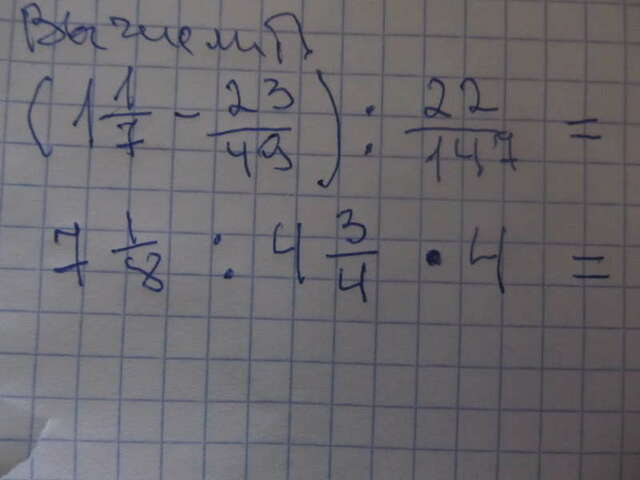 Вычислить
(1 1/7 - 23/49) : 22/147 =
7 1/8 : 4 3/4 · 4 =